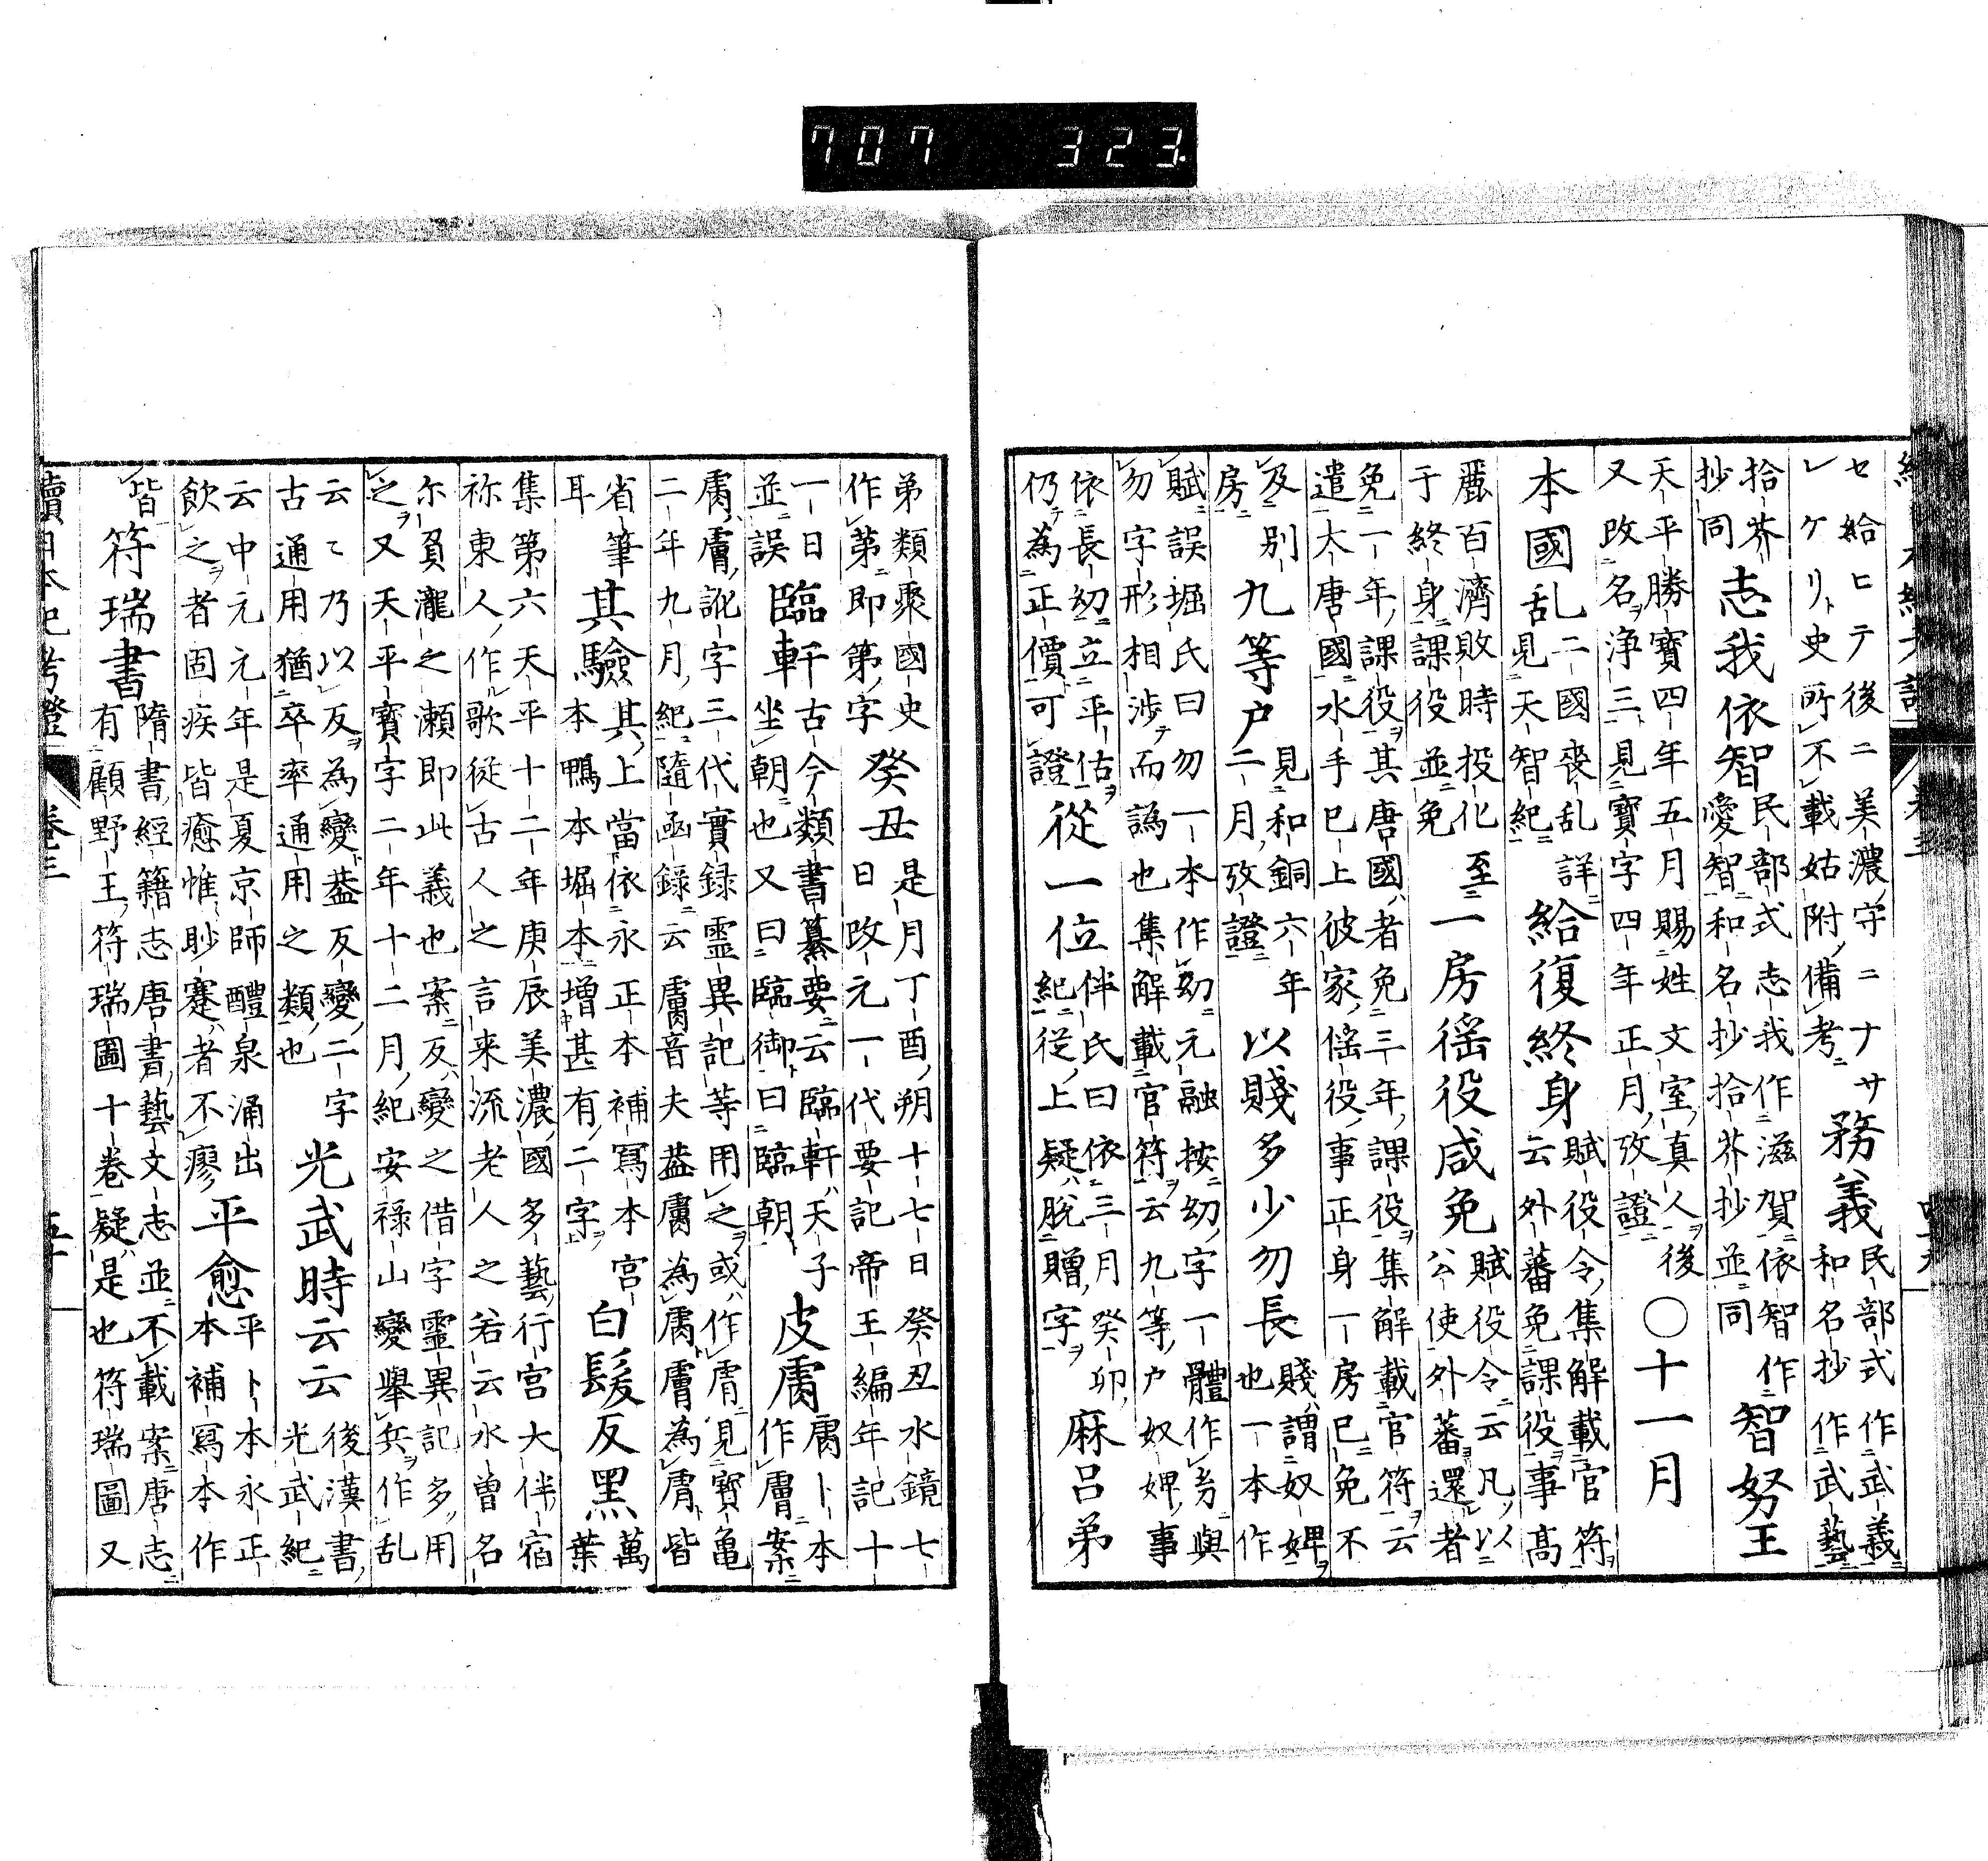 707 323
セ給ヒテ後ニ美濃守ニナサ
レケリト史所不載姑附備考
務義
民部式作武義
和名抄作武藝
拾芥
抄同
志我依智
民部式志我作滋賀依智作
愛智和名抄拾芥抄並同
智努王
天平勝寶四年五月賜姓文室真人後
又改名淨三見寶字四年正月攷證
〇十一月
本國乱
二國喪乱詳
見天智紀
給復終身
賦役令集解載官符
云外蕃免課役事高
麗百濟敗時投化至
于終身課役並免
一房徭役咸免
賦役令云凡以
公使外蕃還者
免一年課役其唐國者免三年課役集解載官符云
遣大唐國水手已上彼家徭役事正身一房已免不
及別
房
九等户
見和銅六年
二月攷證
以賤多少勿長
賤謂奴婢
也一本作
賦誤堀氏曰勿一本作幼元融按幼字一體作㓜與
勿字形相渉而譌也集解載官符云九等户奴婢事
依長幼立平估
仍為正價可證
從一位
伴氏曰依三月癸卯
紀從上疑脫贈字
麻呂弟
弟類聚國史
作第即第字
癸丑
是月丁酉朔十七日癸丑水鏡七
日改元一代要記帝王編年記十
一日
並誤
臨軒
古今類書纂要云臨軒天子
坐朝也又曰臨御曰臨朝
皮膚
膚卜本
作膚案
膚膚訛字三代實録靈異記等用之或作膚見寶亀
二年九月紀隨函録云膚音夫葢膚為膚膚為膚皆
省筆
耳
其驗
其上當依永正本補寫本宮
本鴨本堀本增甚有二字
白髮反黑
萬
葉
集第六天平十二年庚辰美濃國多藝行宮大伴宿
祢東人作歌從古人之言来流老人之若云水曽名
尓負瀧之瀬即此義也案反變之借字靈異記多用
之又天平寶字二年十二月紀安禄山變舉兵作乱
云々乃以反為變葢反變二字
古通用猶卒率通用之類也
光武時云云
後漢書
光武紀
云中元元年是夏京師醴泉涌出
飲之者固疾皆癒惟眇蹇者不廖
平愈
平卜本永正
本補寫本作
皆
符瑞書
隋書經籍志唐書藝文志並不載案唐志
有顧野王符瑞圖十卷疑是也符瑞圖又
續日本紀考證 卷三 五十